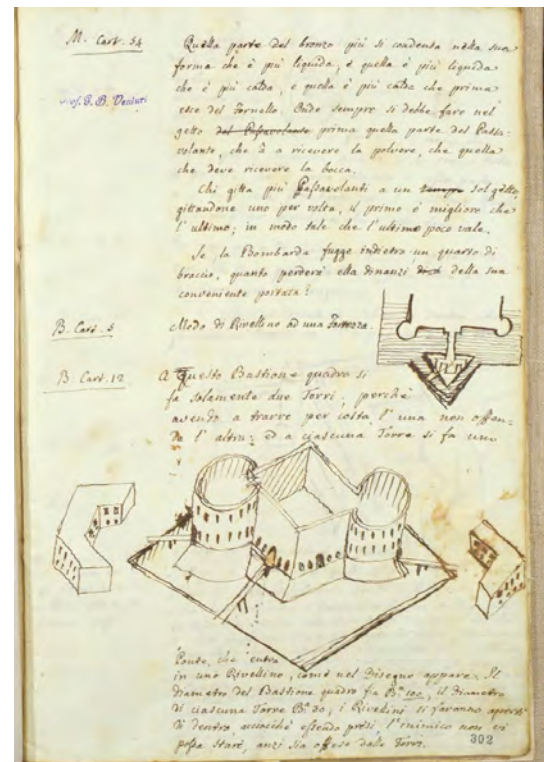 M. Cart. 54
Quella parte del bronzo più si condensa nella sua
forma che è più liquida, e quella è più liquida
che è più calda, e quella è più calda che prima
esce del Fornello. Onde sempre si debbe fare nel
Prof. G. B. Venturi
getto del Passavolante prima quella parte del Passa-
volante, che à a ricevere la polvere, che quella
che deve ricevere la bocca.
Chi gitta più Passavolanti a un sol getto,
gittandone uno per volta, il primo è migliore che
l'ultimo; in modo tale che l'ultimo poco vale.
Se la Bombarda fugge indietro un quarto di
braccio, quanto perderà ella dinanzi della sua
conveniente portata?
B. Cart. 5
Modo di Rivellino ad una Fortezza.
B. Cart. 12
A Questo Bastione quadro si
fa solamente due Torri; perchè
avendo a trarre per costa l'una non offen-
da l'altra; ed a ciascuna Torre si fa uno
Ponte, che entra
in uno Rivellino, come nel Disegno appare. Il
diametro del Bastione quadro fa B.ᵃ 100, il diametro
di ciascuna Torre B.ᵃ 30, i Rivellini si faranno aperti
di dentro, acciocchè essendo presi, l'inimico non vi
possa stare, anzi sia offeso dalle Torri.
302